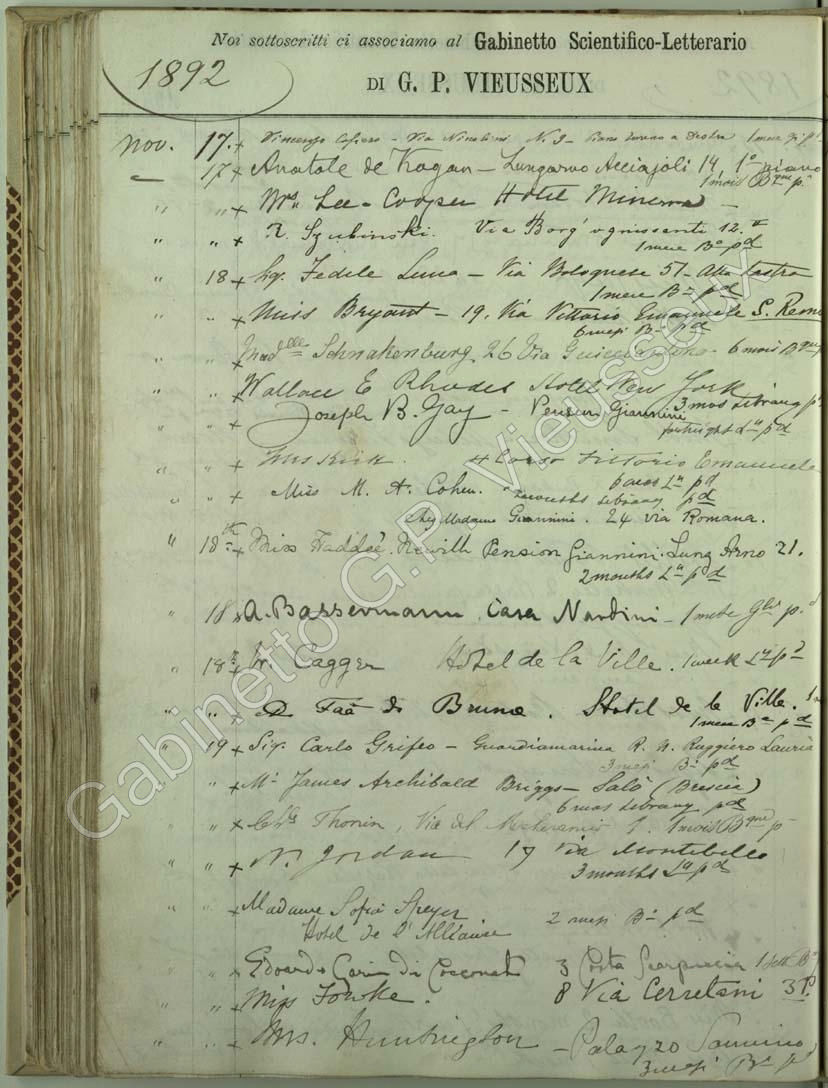 Noi sottoscritti ci associamo al Gabinetto Scientifico-Letterario
1892
DI G. P. VIEUSSEUX
Nov. 17. + Vincenzo - Via N. 3 - Piano terreno a destra 1 mese
17 + Anatole de Kogan - Lungarno Acciajoli 14 1º piano
1 mois Bque p.
" " + Mrs. Lee-Cooper Hotel Minerva -
" " + Szubinski. Via Borg' ognissanti 12.
1 mese Ba pd
" 18 + Sig. Fedele Luna - Via Bolognese 51 - alla Lastra
1 mese Ba pd
" " + Miss Bryant - 19. Via Vittorio Emanuele S. Remo
6 mesi B- pd
" " + Madlle Schnakenburg, 26 Via Guicciardini - 6 mois Bque
" " + Wallace E Rhodes Hotel New York
3 mos Library pd
" " + Joseph B. Gay - Pension Giannini
fortnight Ly pd
" " + 4 Corso Vittorio Emanuele
6 mos Ly pd
" " + Miss M. A. Cohen. 2 months Library pd
chez Madame Giannini. 24 via Romana.
" 18th + Miss Newill Pension Giannini. Lung Arno 21.
2 months Ly pd
" 18 + A. Bassermann, Casa Nardini - 1 mese
" 18 + W. Cagger Hotel de la Ville. 1 week Ly pd
" " + Faà di Bruno. Hotel de la Ville.
1 mese Ba pd
" 19 + Sig. Carlo Grifeo - Guardiamarina R. N. Ruggiero Lauria
3 mesi Ba pd
" " + Mr James Archibald Briggs - Salò (Brescia)
6 mos Library pd
" " + Chles Thonin, Via del 1. 1 mois Bque p
" " + N. Jordan 19 Via Montebello
3 months Ly pd
" " + Madame Sofia Speyer 2 mesi Ba pd
Hotel de l'Alliance
" " + Edoardo di Cossonato 3 Costa Scarpuccia 1 sett. Ba
" " + Miss Fowke. 8 Via Cerretani 3 P.
" " + Mrs. Huntington - Palazzo
3 mesi Ba pd
Gabinetto G.P. Vieusseux